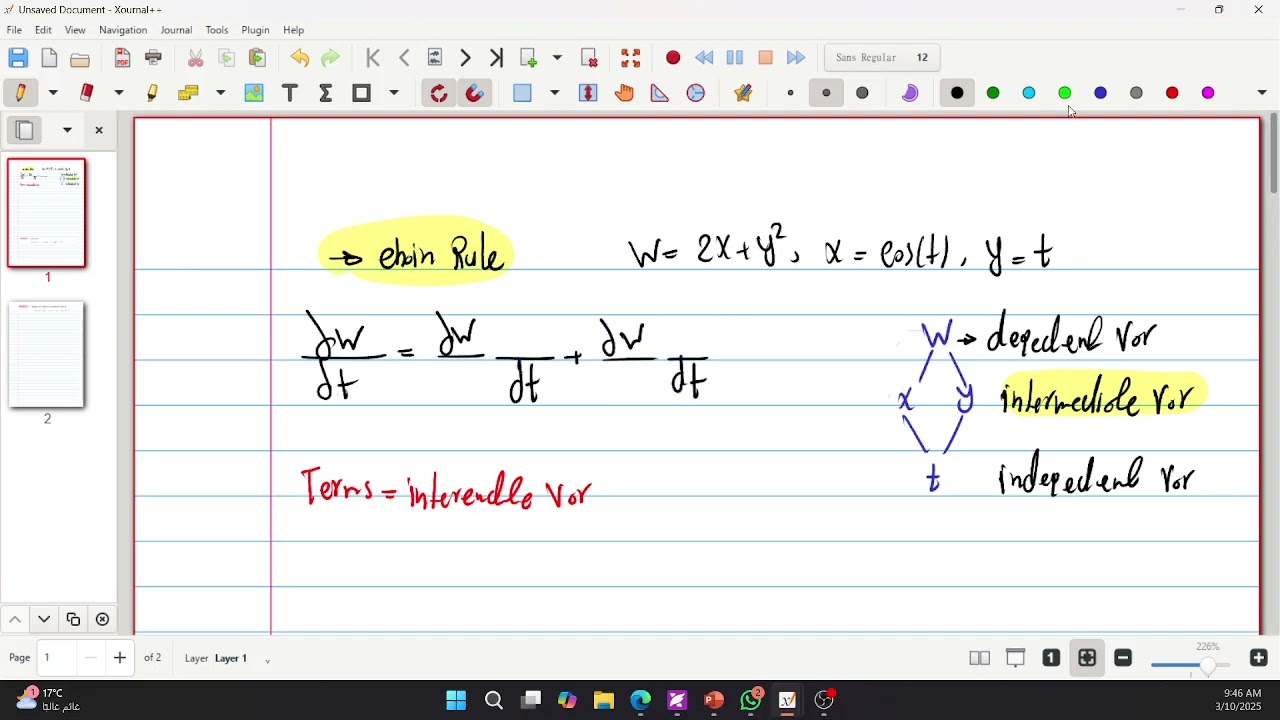 Unsaved Document - Xournal++
File Edit View Navigation Journal Tools Plugin Help
Sans Regular 12
→ chain Rule
W = 2x + y², x = cos(t), y = t
∂W/dt = ∂W/ /dt + ∂W/ /dt
W → depedent var
x y intermediate var
t indepedent var
Terms = var
1
2
Page 1 of 2 Layer Layer 1
226%
1
17°C
غائم غالبا
2
9:46 AM
3/10/2025